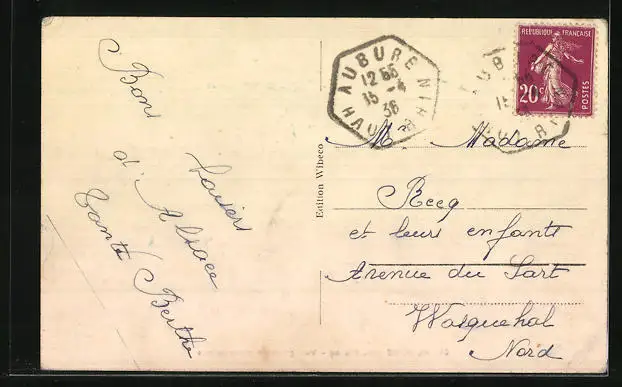 Bons
baisers
d'Alsace
Tante Berthe
Edition Wibeco
AUBURE HAUT RHIN
12 55
15 - 4
36
REPUBLIQUE FRANÇAISE
20c
POSTES
Mr Madame
Becq
et leurs enfants
Avenue du Sart
Wasquehal
Nord